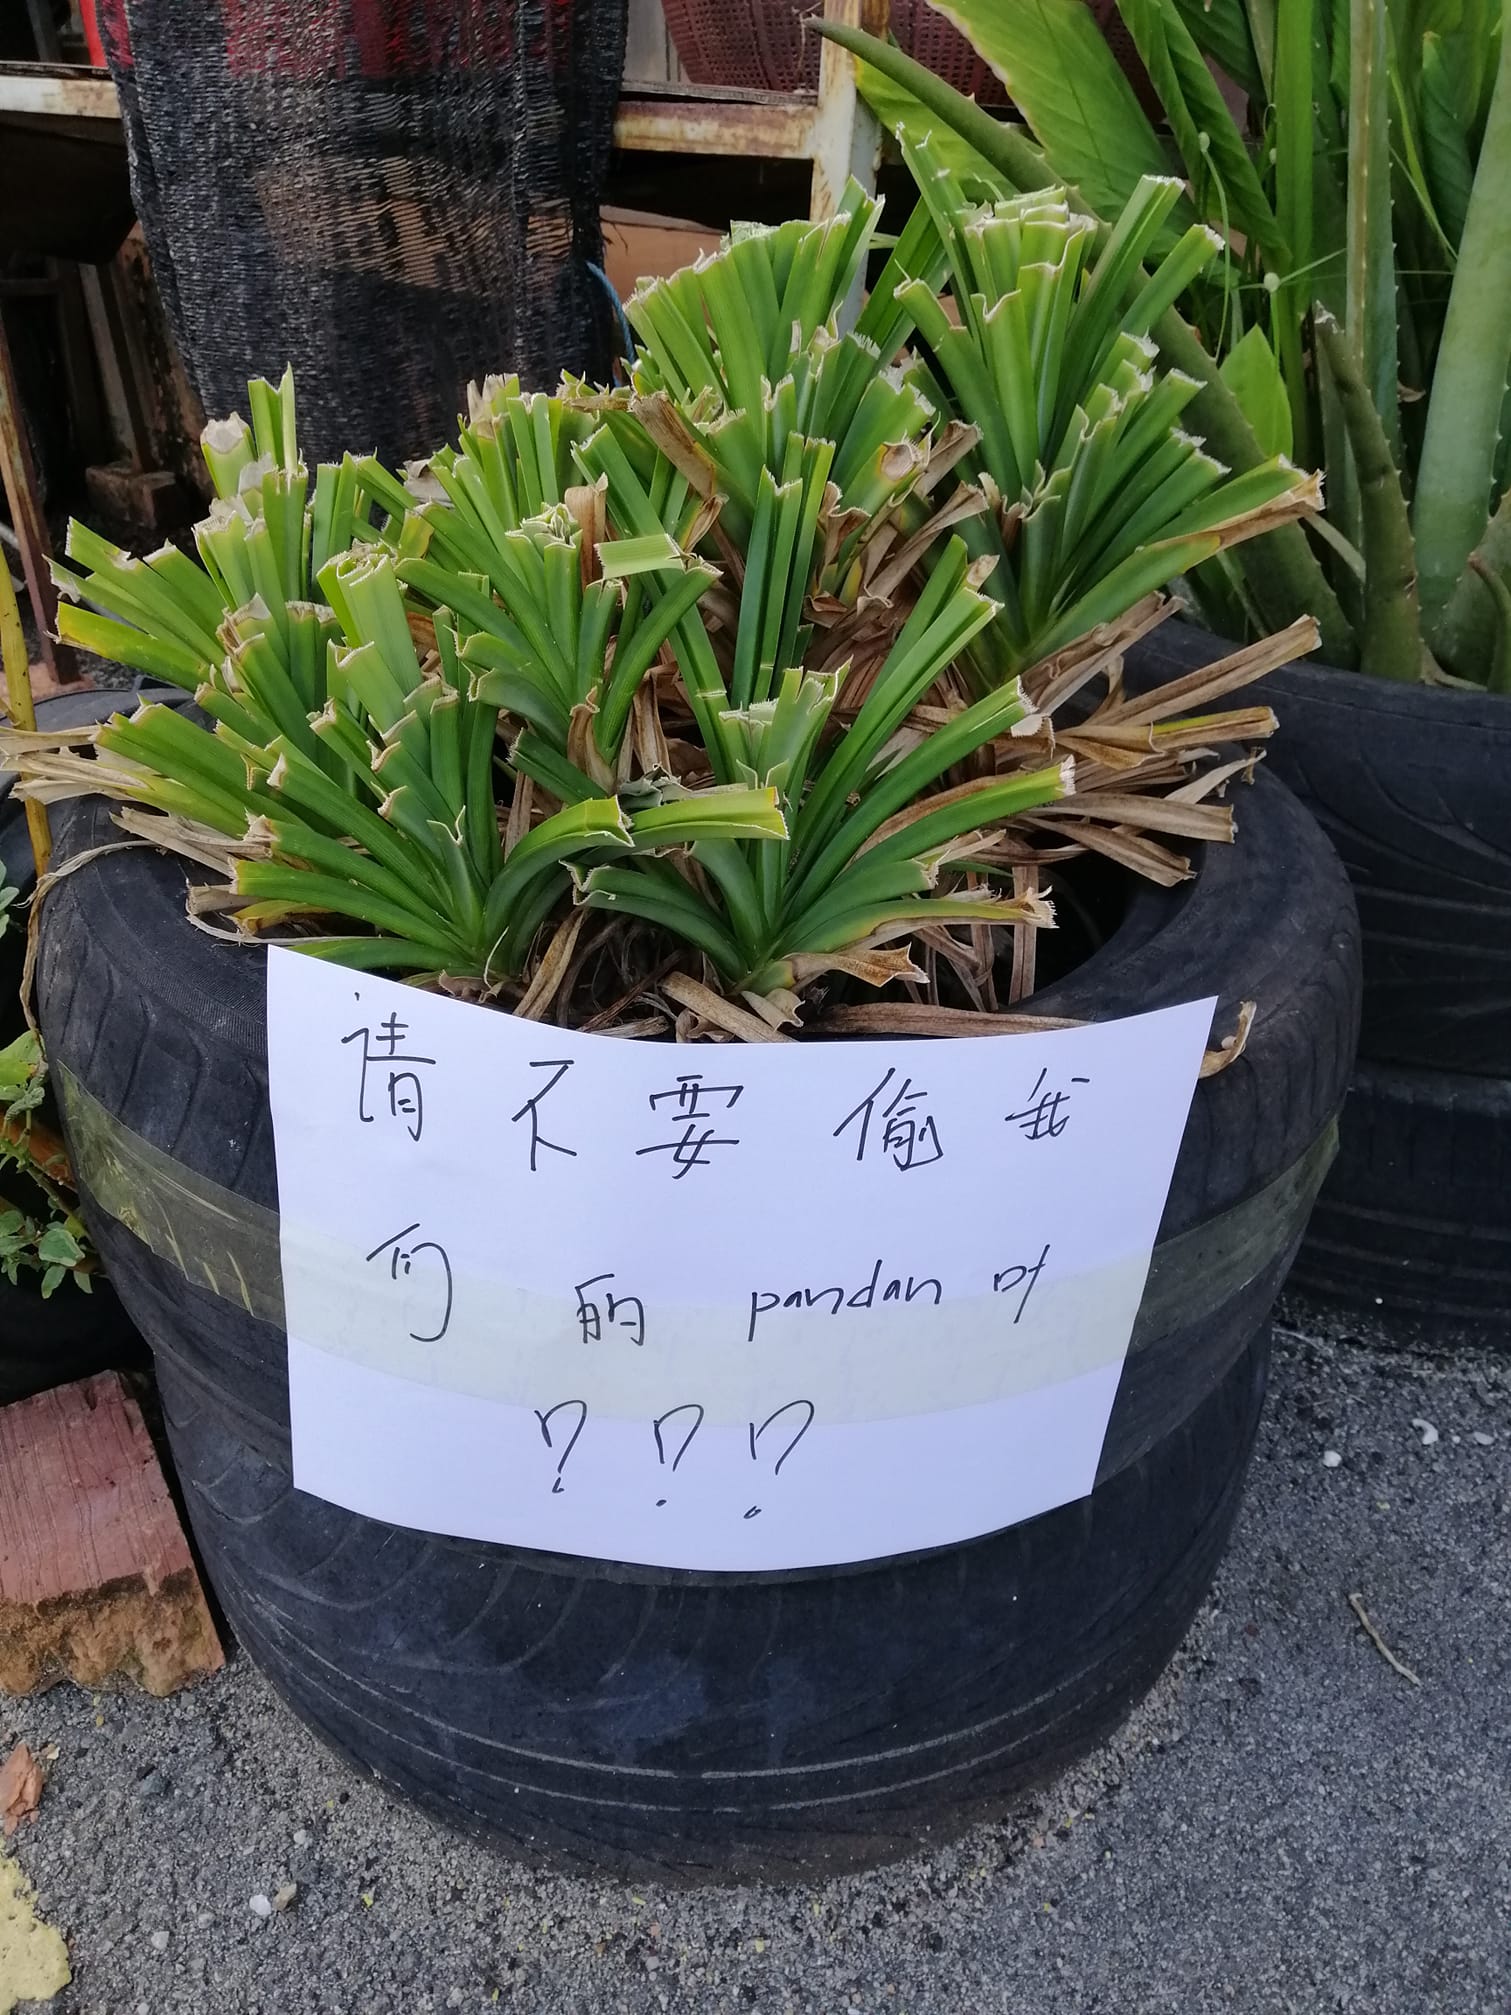 请不要偷我
们的 pandan 叶
???